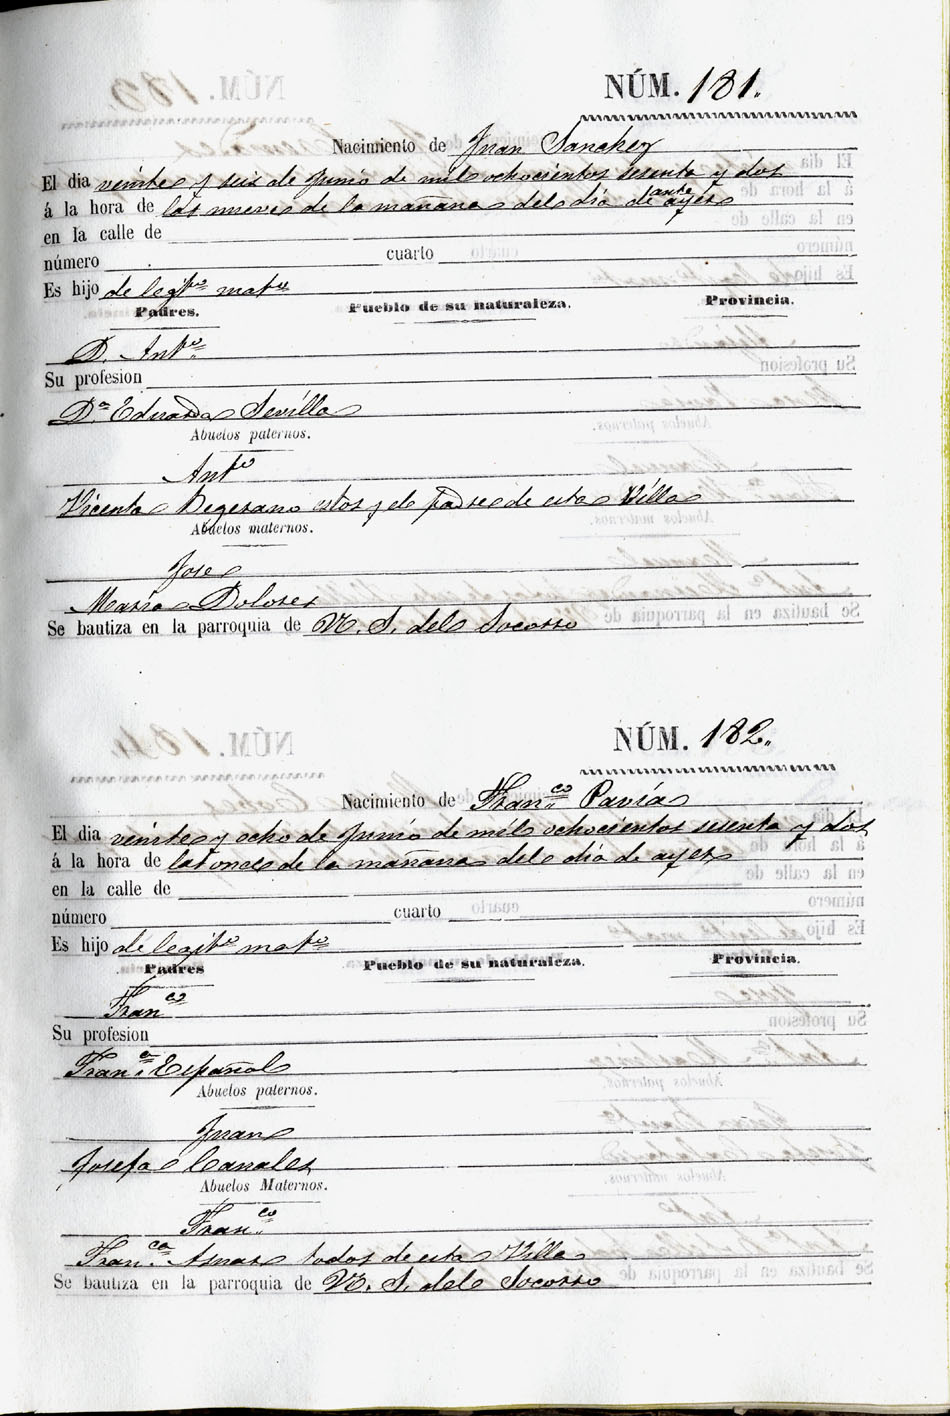 NÚM. 181.
Nacimiento de Juan Sanchez
El dia veinte y seis de Junio de mil ochocientos sesenta y dos
á la hora de las nueve de la mañana del dia de ante ayer
en la calle de
número cuarto
Es hijo de legmo matro
Padres. Pueblo de su naturaleza. Provincia.
D. Anto
Su profesion
Da. Eduarda Sevilla
Abuelos paternos.
Anto
Vicenta estos y el padre de esta Villa
Abuelos maternos.
Jose
Maria Dolores
Se bautiza en la parroquia de N. S. del Socorro
NÚM. 182.
Nacimiento de Franco Pavía
El dia veinte y ocho de Junio de mil ochocientos sesenta y dos
á la hora de las once de la mañana del dia de ayer
en la calle de
número cuarto
Es hijo de legito mato
Padres Pueblo de su naturaleza. Provincia.
Franco
Su profesion
Frana. Español
Abuelos paternos.
Juan
Josefa Canales
Abuelos Maternos.
Franco
Franca. Asnar todos de esta Villa
Se bautiza en la parroquia de N. S. del Socorro